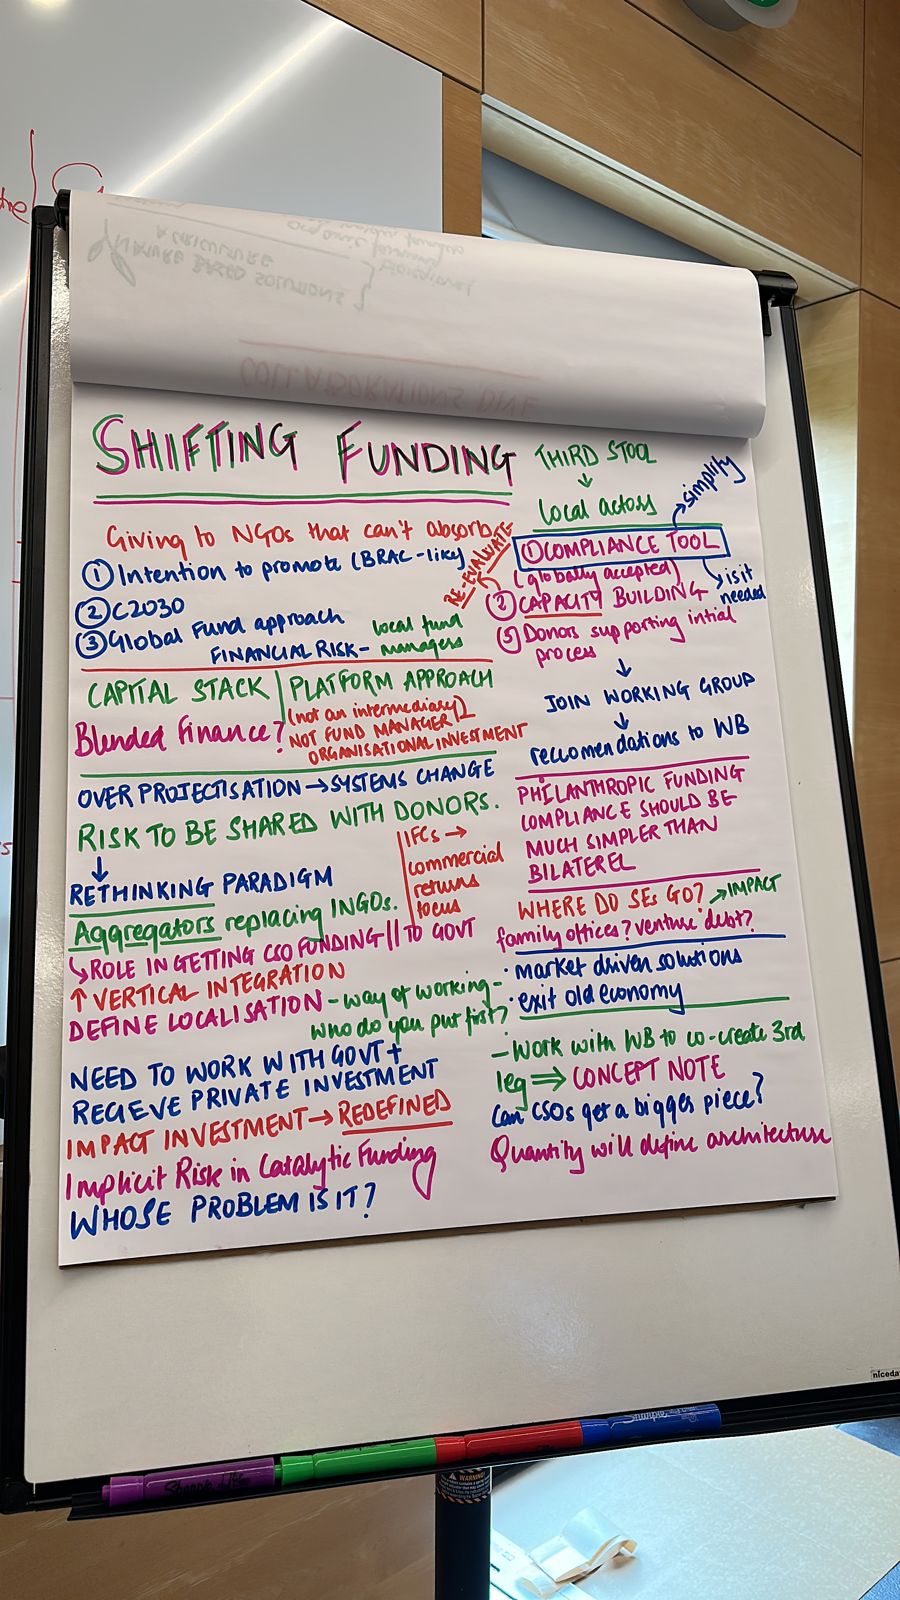 SHIFTING FUNDING
Giving to NGOs that can't absorb
① Intention to promote (BRAC-like)
② C2030
③ Global Fund approach
FINANCIAL RISK - local fund
managers
CAPITAL STACK
Blended Finance?
PLATFORM APPROACH
(not an intermediary)
NOT FUND MANAGER
ORGANISATIONAL INVESTMENT
OVER PROJECTISATION → SYSTEMS CHANGE
RISK TO BE SHARED WITH DONORS.
↓
RETHINKING PARADIGM
IFCs →
commercial
returns
focus
Aggregators replacing INGOs.
↳ ROLE IN GETTING CSO FUNDING // TO GOVT
↑ VERTICAL INTEGRATION
DEFINE LOCALISATION - way of working -
who do you put first?
NEED TO WORK WITH GOVT +
RECIEVE PRIVATE INVESTMENT
IMPACT INVESTMENT → REDEFINED
Implicit Risk in Catalytic Funding
WHOSE PROBLEM IS IT?
THIRD STOOL
↓
Local actors
simplify
① COMPLIANCE TOOL
(globally accepted)
is it
needed
RE-EVALUATE
② CAPACITY BUILDING
Donors supporting intial
process
↓
JOIN WORKING GROUP
↓
reccomendations to WB
PHILANTHROPIC FUNDING
COMPLIANCE SHOULD BE
MUCH SIMPLER THAN
BILATEREL
WHERE DO SEs GO? → IMPACT
family offices? venture debt?
· market driven solutions
· exit old economy
- Work with WB to co-create 3rd
leg ⇒ CONCEPT NOTE
Can CSOs get a bigger piece?
Quantity will define architecture
COLLABORATIONS
NATURE BASED SOLUTIONS
AGRICULTURE
WARNING